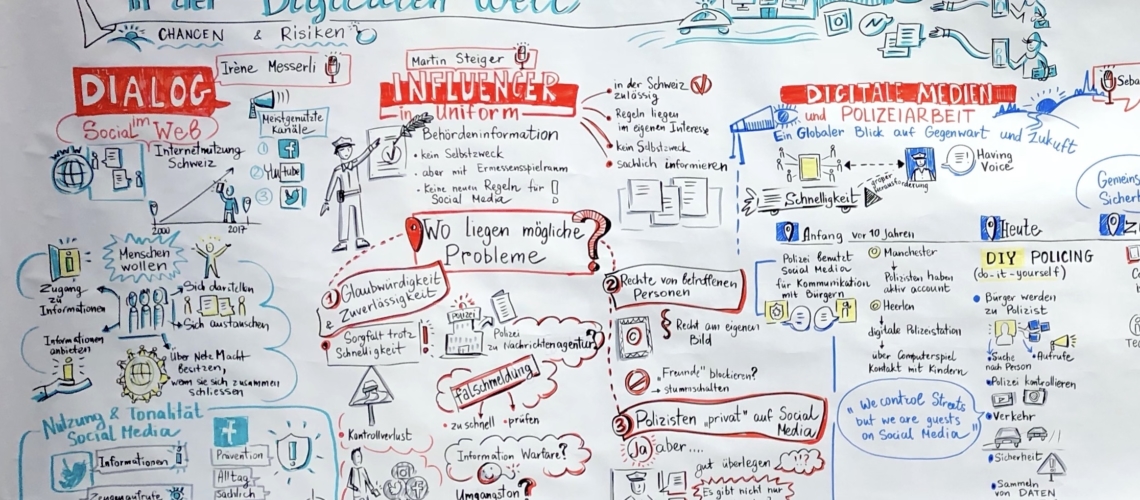 in der Digitalen Welt
CHANCEN & Risiken
DIALOG
Irène Messerli
im
Social Web
Meistgenutzte
Kanäle
Internetnutzung
Schweiz
1
2 YouTube
3
2000 2017
Menschen
wollen
Zugang
zu
Informationen
Sich darstellen
Sich austauschen
Informationen
anbieten
Über Netz Macht
Besitzen,
wenn sie sich zusammen
schliessen
Nutzung & Tonalität
Social Media
Informationen
Zeugenaufrufe
Prävention
Alltag
Sachlich
Martin Steiger
INFLUENCER
in Uniform
Behördeninformation
• kein Selbstzweck
• aber mit Ermessensspielraum
• Keine neuen Regeln für
Social Media
in der Schweiz
zulässig
Regeln liegen
im eigenen Interesse
kein Selbstzweck
sachlich informieren
Wo liegen mögliche
Probleme ?
1 Glaubwürdigkeit
& Zuverlässigkeit
Sorgfalt trotz
Schnelligkeit !
• Kontrollverlust
Polizei
Polizei
zu Nachrichtenagentur?
Falschmeldung
• zu schnell • prüfen
Information Warfare?
Umgangston?
2 Rechte von betroffenen
Personen
§ Recht am eigenen
Bild
"Freunde" blockieren?
→ stummschalten
3 Polizisten "privat" auf Social
Media
Ja aber....
gut überlegen
Es gibt nicht nur
DIGITALE MEDIEN
und POLIZEIARBEIT
Ein Globaler Blick auf Gegenwart und Zukunft
Having
Voice
Schnelligkeit
Anfang vor 10 Jahren
Polizei benutzt
Social Media
für Kommunikation
mit Bürgern
Manchester
Polizisten haben
aktiv account
Heerlen
digitale Polizeistation
über Computerspiel
Kontakt mit Kindern
"We control Streets
but we are guests
on Social Media"
Heute
DIY POLICING
(do-it-yourself)
• Bürger werden
zu Polizist
Suche
nach Person
Aufrufe
• Polizei kontrollieren
• Verkehr
• Sicherheit
• Sammeln
von DATEN
Seba
Gemeins
Sicher